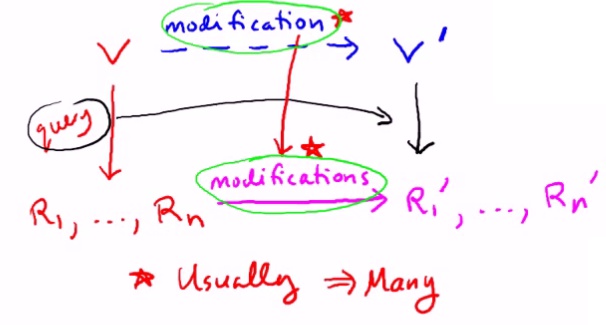 modification *
V V'
query
*
modifications
R1, ..., Rn R1', ..., Rn'
* Usually ⇒ Many